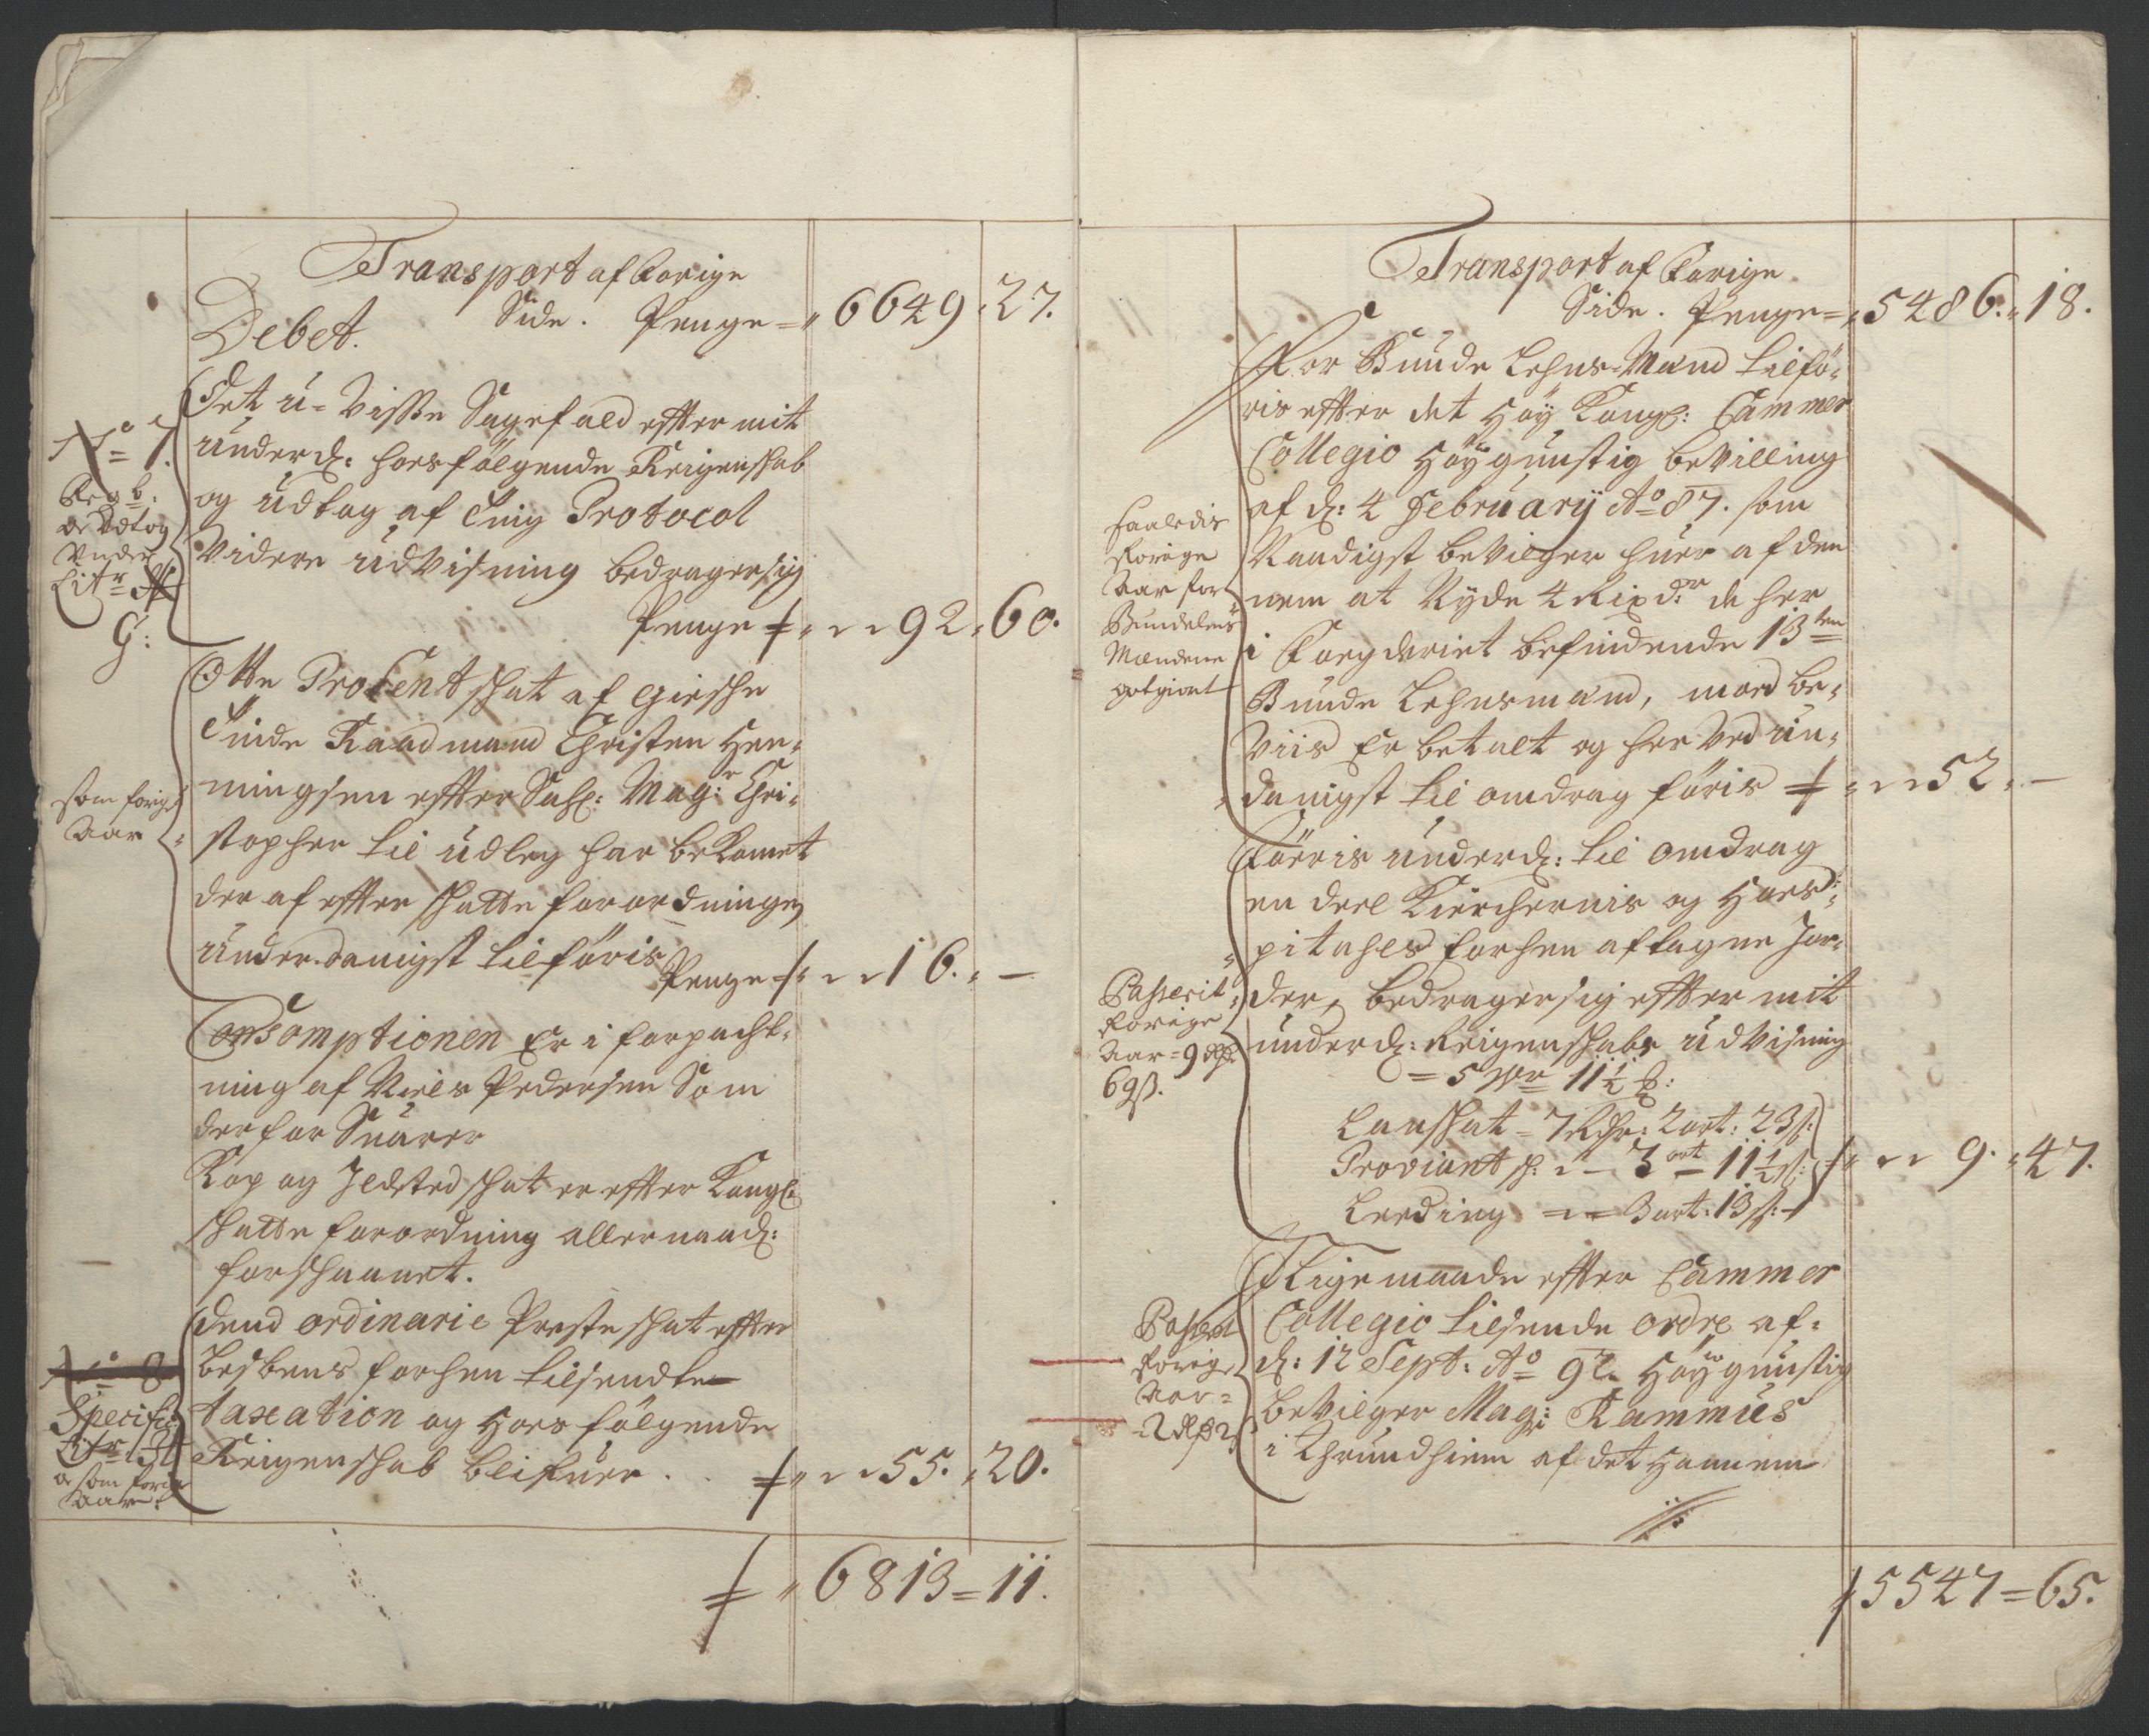 Transport af Forige
Side. Penge = 6649 . 27.
Debet.
Det u-Visse Sagefald effter mit
underd: hoesfölgende Reigenskab
og Udtog af Ting Protocol
Videre udVisning bedrager sig
Penge 92 . 60.
No 7.
Regb:
oc Udtog
Under
Litr
G:
Otte ProCent skat af
Raadmand Christen Hen-
ningsen effter Sahl: Magr: Chri-
stopher til udleg har bekomet
der af effter skatte forordningen
underdanigst tilföris
Penge 16. —
som forige
Aar
Consomptionen Er i forpacht-
ning af Niels Pedersen Som
derfor Suarer
Kop og Ildsted skat er effter Kongl:
skatte forordning allernaad:
forskaanet.
Dend ordinarie Preste skat effter
forhen tilsendte
taxation og Hoes fölgende
Reigenskab blifuer . . 55 . 20.
No 8
Specific:
Litr
oc som forige
Aar
6813 = 11.
Transport af Forige
Side. Penge = 5486 . 18.
For Bunde Lehns-Mænd tilfö-
ris effter det Höy Kongl: Cammer
Collegio Höygunstig beVilling
af d: 4 February Ao 87. som
Naadigst beVilger huer af den
nem at Nyde 4 Rixdr de her
i Fogderiet befindende 13ten
Bunde Lehnsmænd, med be-
Viis Er betalt og her Ved un-
danigst til omdrag föris 52 . —
Saaledis
Forige
Aar for
Bundelens
Mændene
gotgiort
Förris underd: til omdrag
en deel Kirchernis og Hos-
pitahls forhen aftagne Jor-
der, bedrager sig effter mit
underd: Reigenskabs udVisning
= 5 11½
Lanskat = 7 Rdr: 2 ort: 23 s:
Proviant sk: 3 ort 11½ s: 9 . 47.
Leeding 3 ort: 13 s:
Passerit
Forige
Aar = 9
69 ß.
I Lige maade effter Cammer
Collegio tilsende ordre af
d: 12 Sept: Ao 92. Höygunstig
beVilger Magr: Rammus
i Thrundhiem af det Hannem
Passerit
Forige
Aar =
5547 = 65.